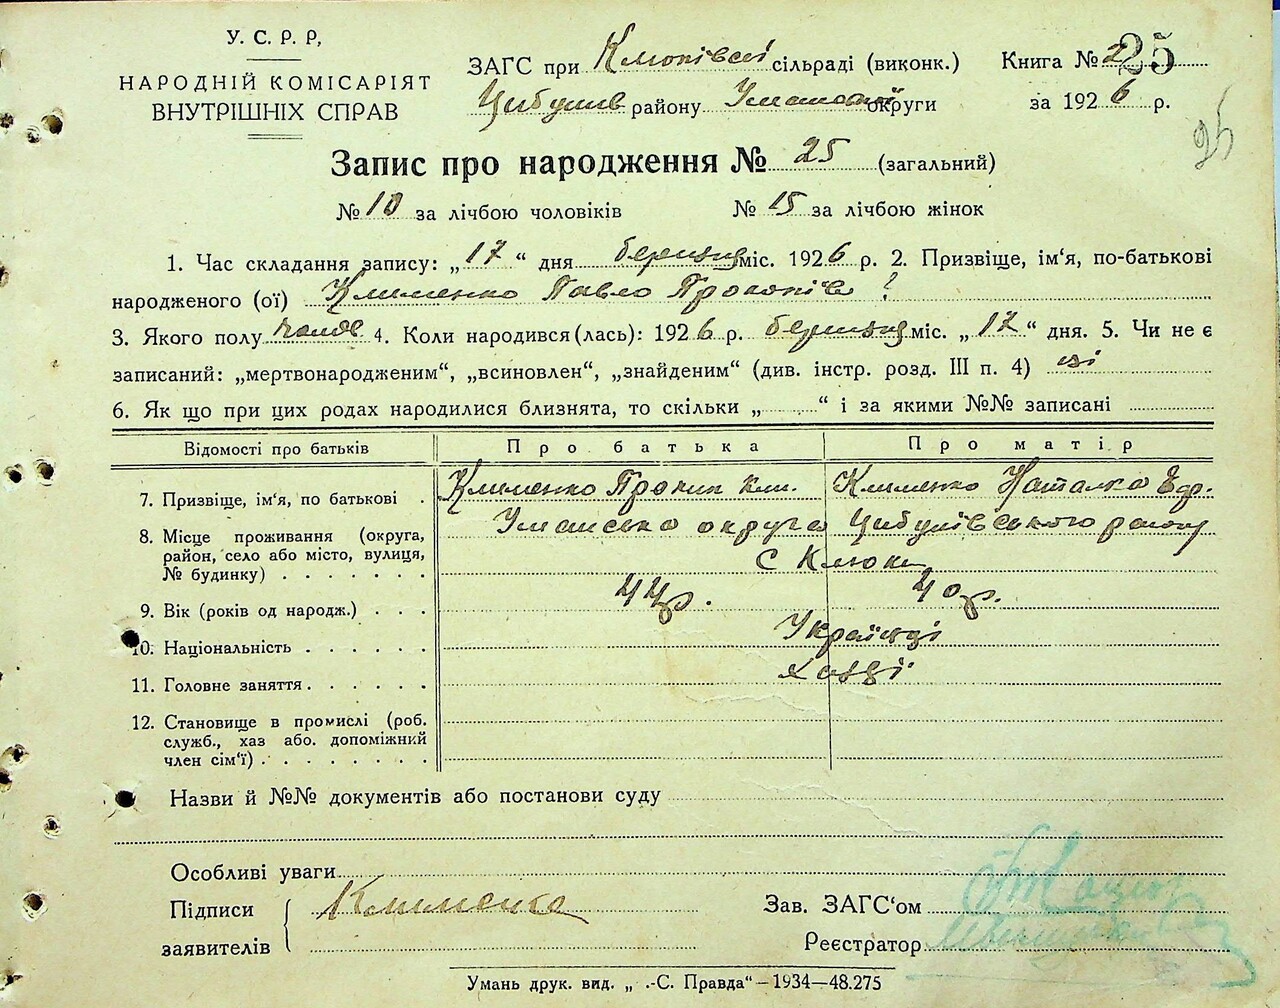 У. С. Р. Р,
НАРОДНІЙ КОМІСАРІЯТ
ВНУТРІШНІХ СПРАВ
ЗАГС при Клюківсі сільраді (виконк.) Книга № 2 25
Цибулів району Уманської округи за 1926 р.
25
Запис про народження № 25 (загальний)
№ 10 за лічбою чоловіків № 15 за лічбою жінок
1. Час складання запису: „17“ дня березня міс. 1926 р. 2. Призвіще, ім'я, по-батькові
народженого (ої) Клименко Павло Прокопів
3. Якого полу чолов 4. Коли народився(лась): 1926 р. березня міс. „17“ дня. 5. Чи не є
записаний: „мертвонародженим“, „всиновлен“, „знайденим“ (див. інстр. розд. III п. 4)
6. Як що при цих родах народилися близнята, то скільки „ “ і за якими №№ записані
Відомості про батьків Про батька Про матір
7. Призвіще, ім'я, по батькові . Клименко Прокип Клим. Клименко Наталка Эфр.
8. Місце проживання (округа, Уманська округа Цибулівського району
район, село або місто, вулиця, с Клюки
№ будинку) . . . . . . .
9. Вік (років од народж.) . . . 44 р. 40 р.
10. Національність . . . . . . Українці
11. Головне заняття . . . . . .
12. Становище в промислі (роб.
служб., хаз або. допоміжний
член сім'ї) . . . . . . . .
Назви й №№ документів або постанови суду
Особливі уваги
Підписи Клименко Зав. ЗАГС'ом
заявителів Реєстратор
Умань друк. вид. „ .-С. Правда“ — 1934—48.275